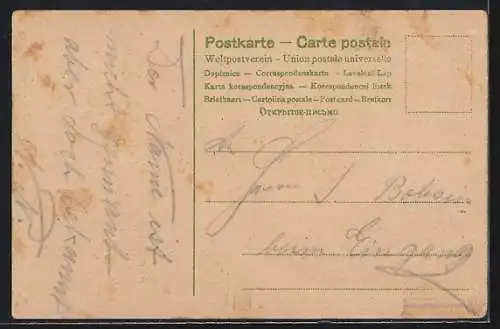 Postkarte — Carte postale
Weltpostverein - Union postale universelle
Dopisnice — Correspondenzkarte — Levelező-Lap
Karta korespondencyjna — Korespondenční lístek
Briefkaart — Cartolina postale — Postcard — Brefkort
ОТКРЫТОЕ-ПИСЬМО
Der Name ist
nicht genannt
aber doch bekannt
An
Herrn J.
beim Eingang